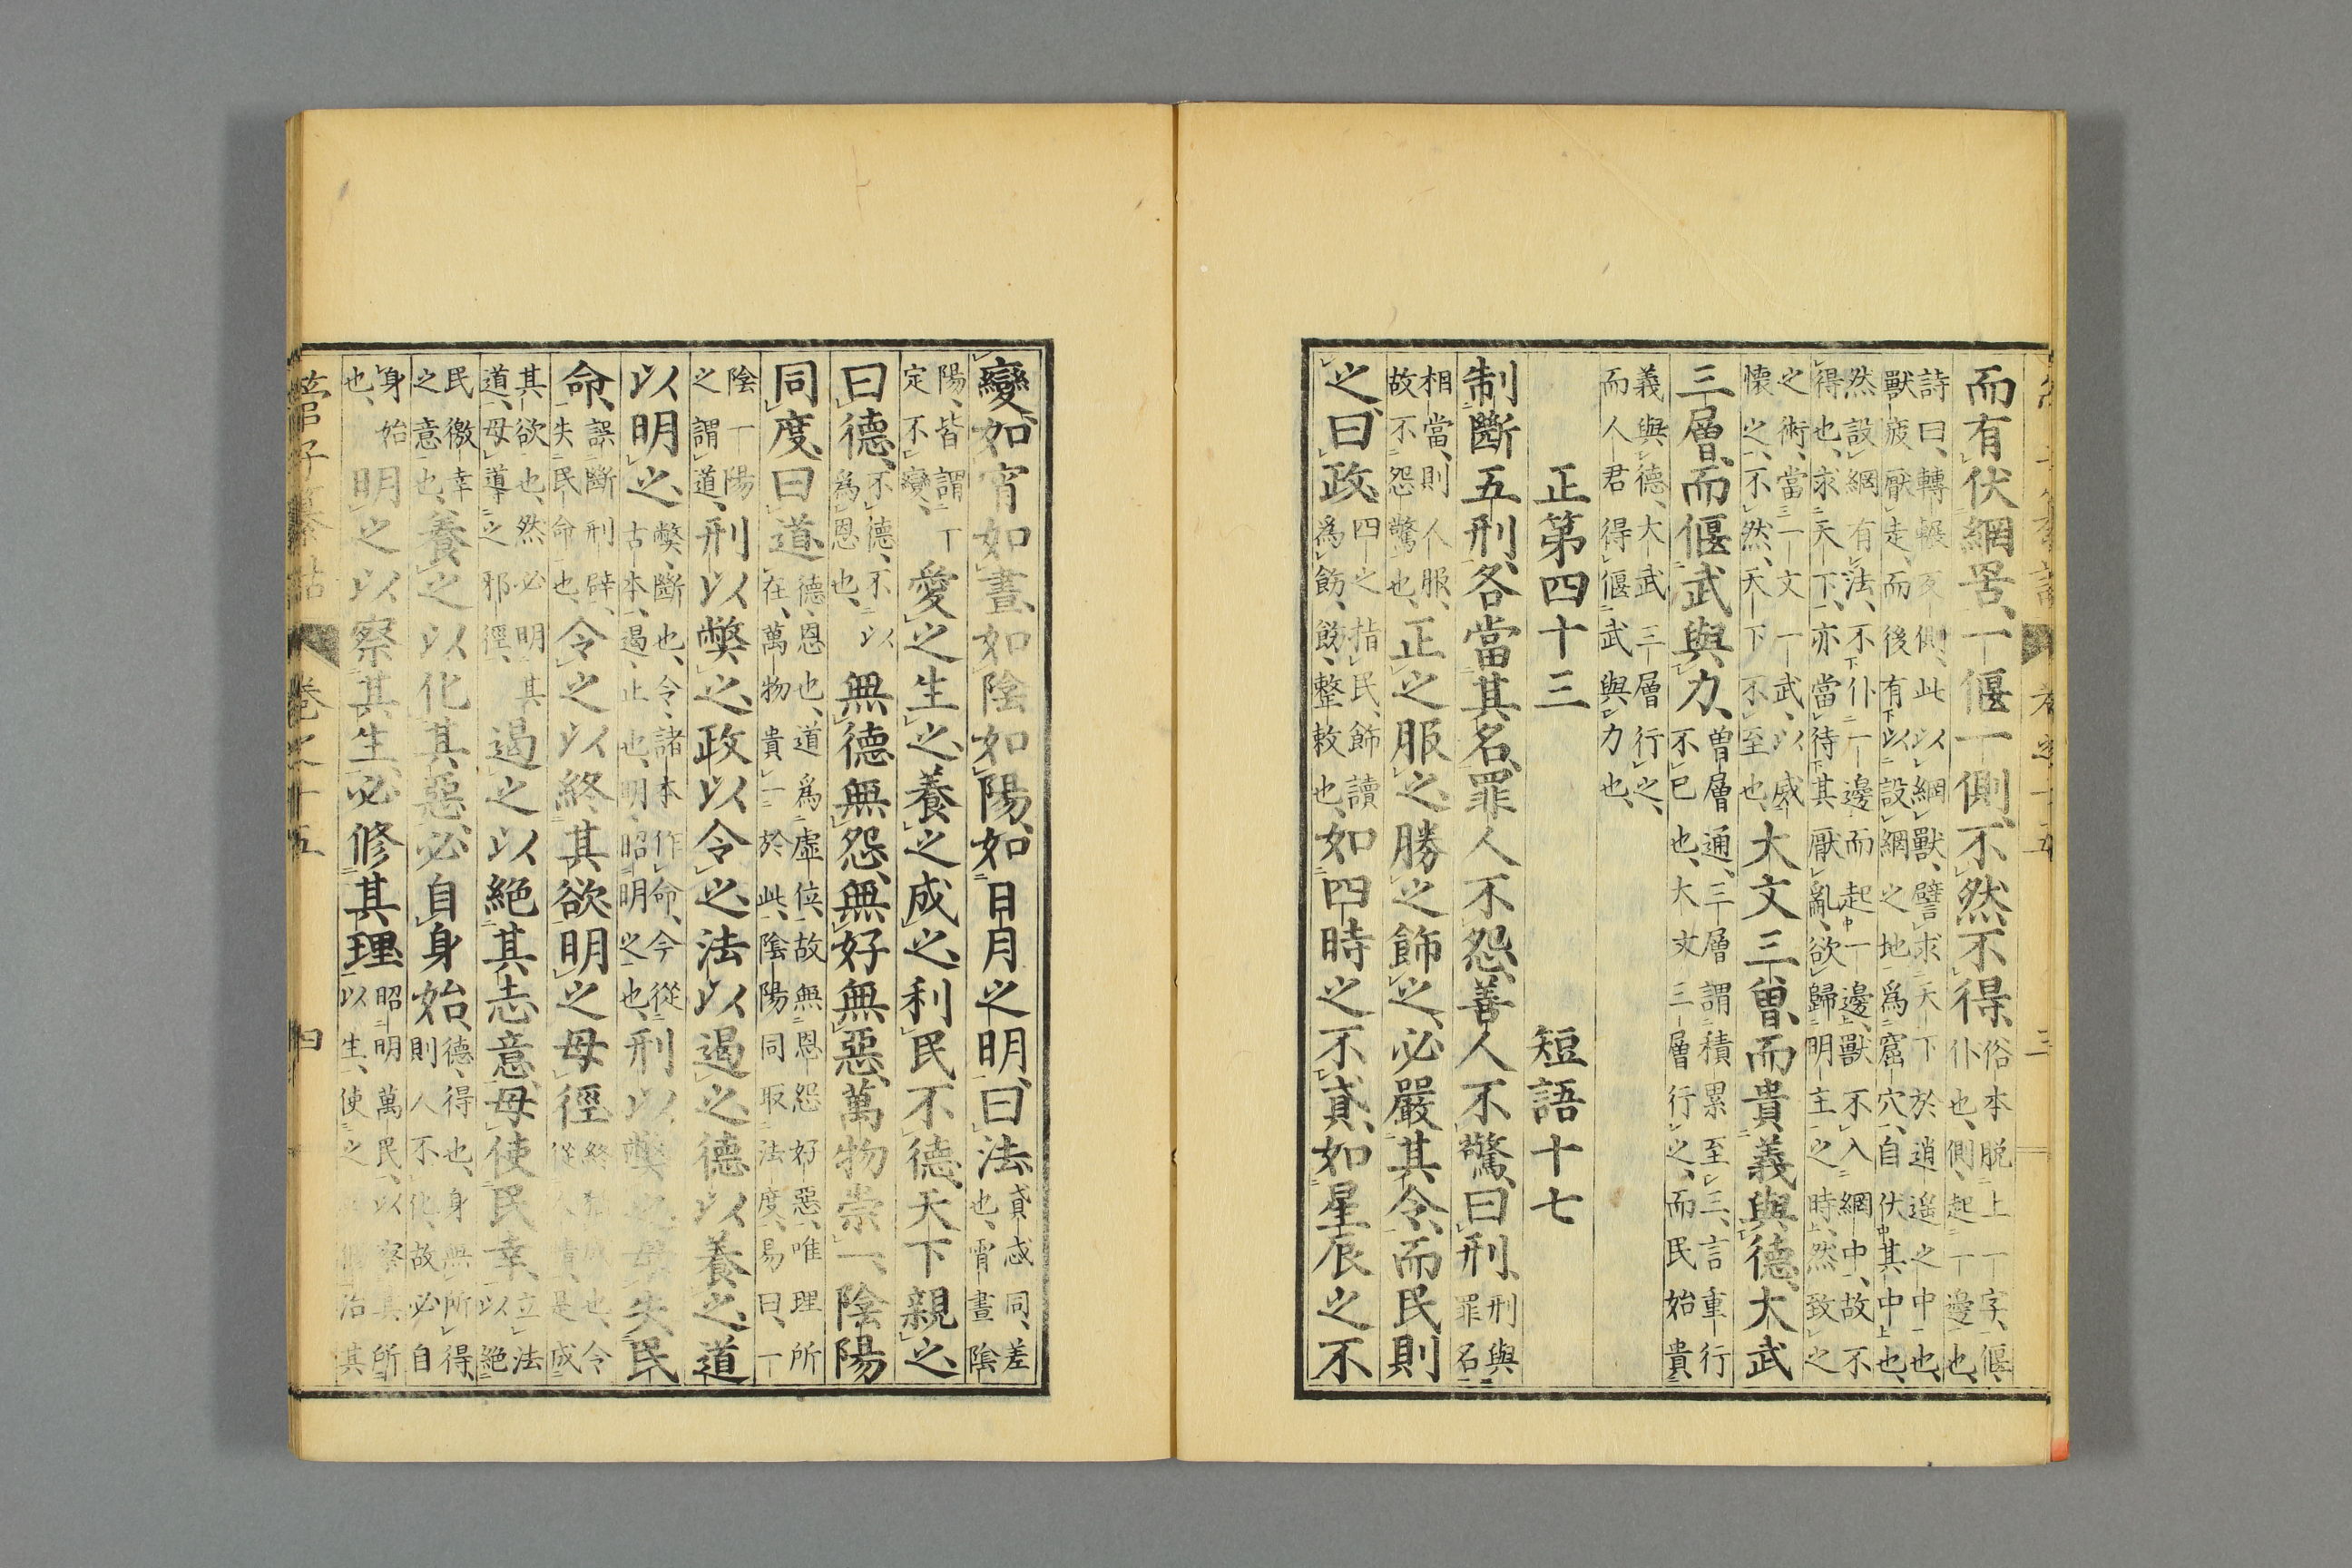 而有伏網罟、一偃一側、不然不得、俗本脱上一字、偃、
仆也、側、起一邊也、
詩曰、轉輾反側、此以網獸、譬求天下於逍遥之中也、
獸疲厭走、而後有以設網之地、爲窟穴、自伏其中也、
然設網有法、不仆一邊而起一邊、獸不入網中、故不
得也、求天下、亦當待其厭亂、欲歸明主之時、然致之
之術、當一文一武、以威
懷之、不然、天下不至也、大文三曽、而貴義與德、大武
三層、而偃武與力、曽層通、三層謂積累至三、言重行
不已也、大文三層行之、而民始貴
義與德、大武三層行之、
而人君得偃武與力也、
正第四十三　短語十七
制斷五刑、各當其名、罪人不怨、善人不驚、曰刑、刑與
罪名
相當、則人服、
故不怨驚也、正之服之、勝之飾之、必嚴其令、而民則
之、曰政、四之指民、飾讀
爲飭、飭、整敕也、如四時之不貣、如星辰之不
變、如宵如晝、如陰如陽、如日月之明、曰法、貣忒同、差
也、宵晝陰
陽、皆謂一
定不變、愛之生之、養之成之、利民不德、天下親之、
曰德、不德、不以
爲恩也、無德無怨、無好無惡、萬物崇一、陰陽
同度、曰道、德、恩也、道爲虛位、故無恩怨好惡、唯理所
在、萬物貴一於此、陰陽同取法度、易曰、一
陰一陽
之謂道、刑以弊之、政以令之、法以遏之、德以養之、道
以明之、弊、斷也、令、諸本作命、今從
古本、遏、止也、明、昭明之也、刑以弊之、毋失民
命、誤斷刑辟、
失民命也、令之以終其欲、明之毋徑、
其欲也、然必明其
道、毋導之邪徑、遏之以絕其志意、毋使民幸、立法
以絕
民徼幸
之意也、養之以化其惡、必自身始、德、得也、身無所得、
則人不化、故必自
身始
也、明之以察其生、必修其理、昭明萬民、以察其所
以生、使之
管子纂詁　卷之十五　四